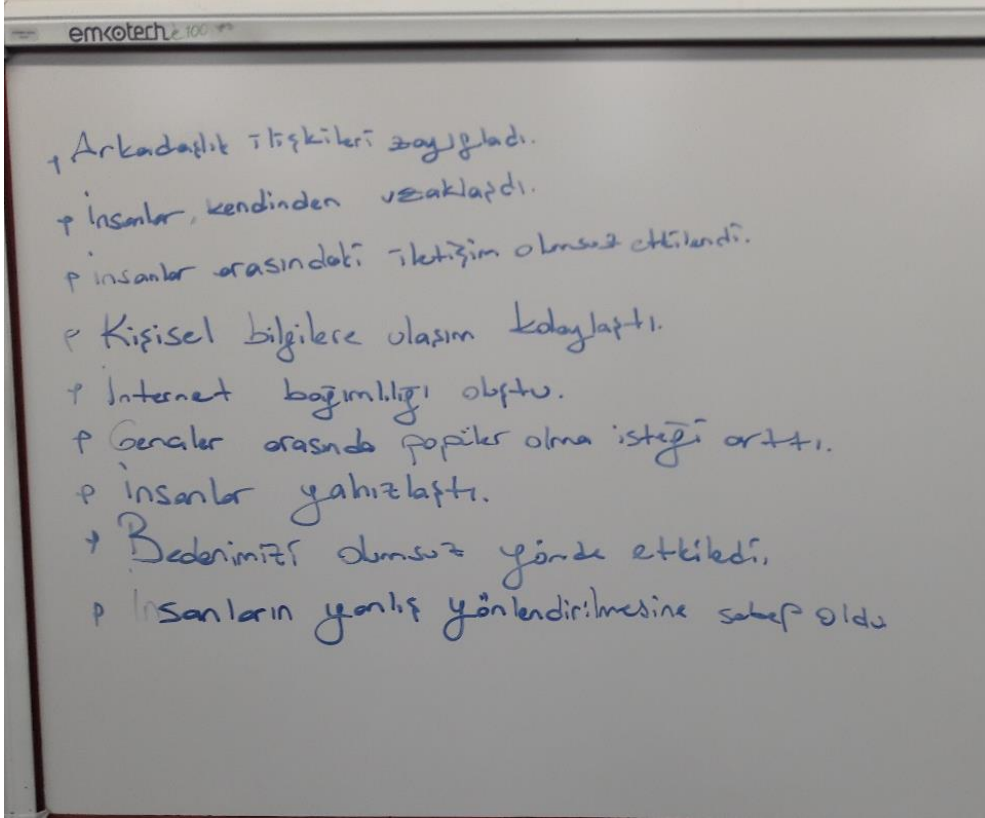 emkotech e100
Arkadaşlık ilişkileri zayıfladı.
İnsanlar, kendinden uzaklaşdı.
insanlar arasındaki iletişim olumsuz etkilendi.
Kişisel bilgilere ulaşım kolaylaştı.
İnternet bağımlılığı oluştu.
Gençler arasında popiler olma isteği arttı.
İnsanlar yalnızlaştı.
Bedenimizi olumsuz yönde etkiledi.
İnsanların yanlış yönlendirilmesine sebep oldu